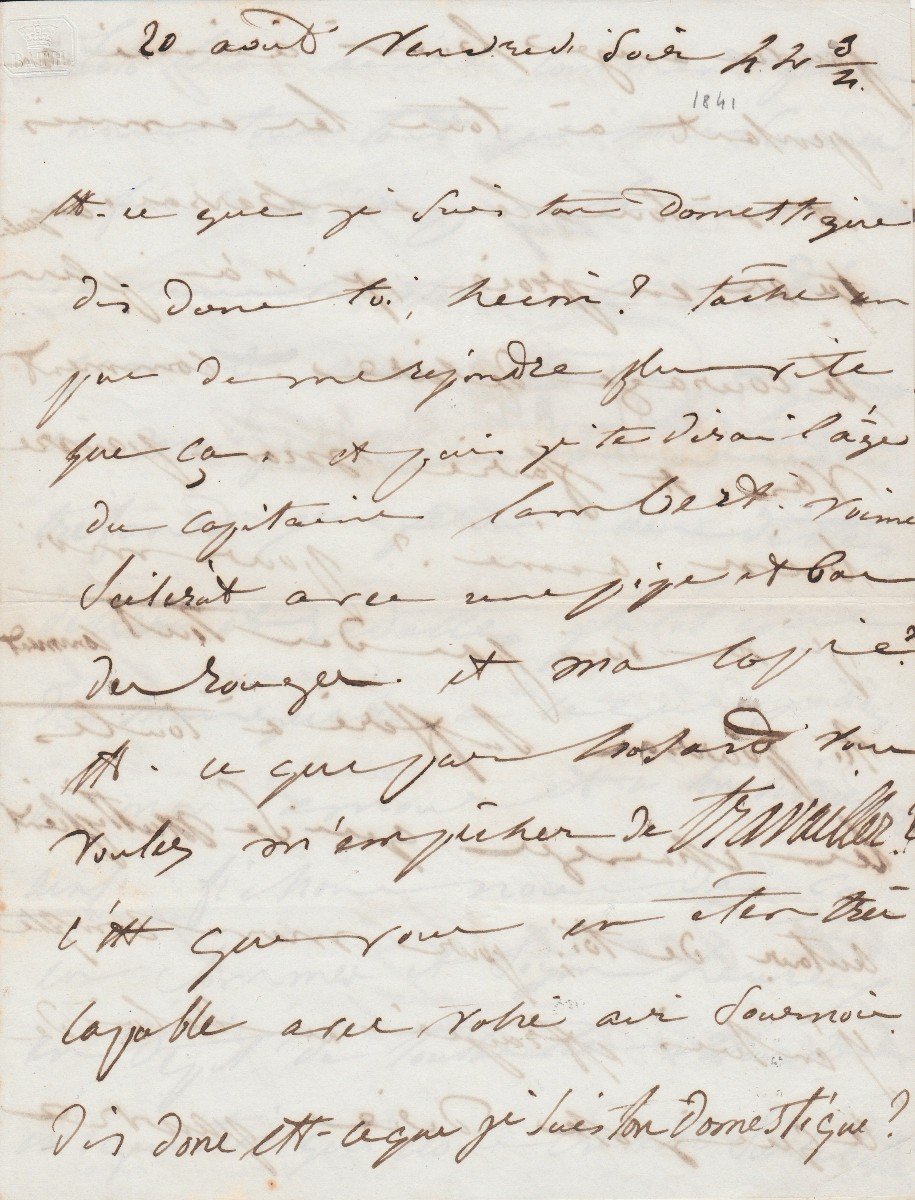 20 août Vendredi soir h. 4 3/4.
1841
Est-ce que je suis ton Domestique
dis donc toi, hein? tâche un
peu de me répondre plus vite
que ça. et puis je te dirai l'âge
du capitaine lambert. Voime
Scélérat avec une pipe et bas
des rouges. et ma Copie?
Est-ce que par hasard vous
voulez m'empêcher de travailler?
C'est que vous en êtes très
capable avec votre air sournois.
Dis donc est-ce que je suis ton Domestique?